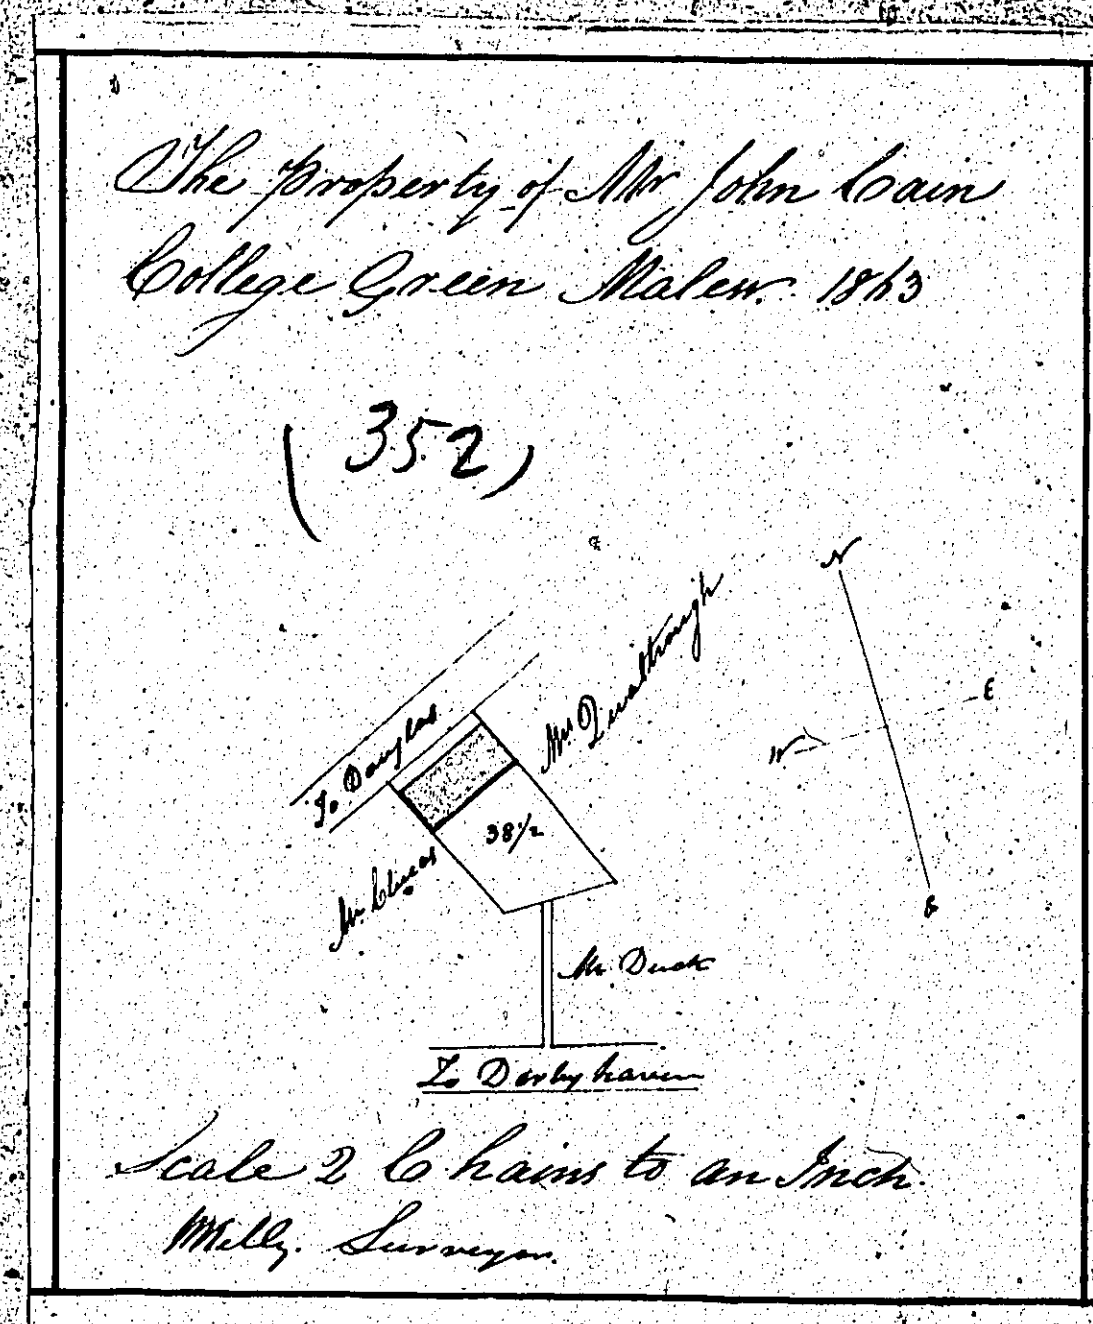 The Property of Mr John Cain
College Green Malew. 1863
(352)
N
E
W
S
To Douglas
Mrs. Qualtrough
38 1/2
Mr. Clucas
Mr. Duck
To Derbyhaven
Scale 2 Chains to an Inch.
Kelly. Surveyor.